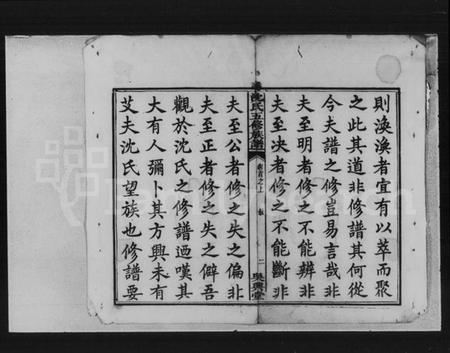 則渙渙者宜有以萃而聚
之此其道非修譜其何從
今夫譜之修豈易言哉非
夫至明者修之不能辨非
夫至決者修之不能斷非
沈氏五修族譜
卷首之上
二
吳興堂
夫至公者修之失之偏非
夫至正者修之失之僻吾
觀於沈氏之修譜迺嘆其
大有人彌卜其方興未有
艾夫沈氏望族也修譜要